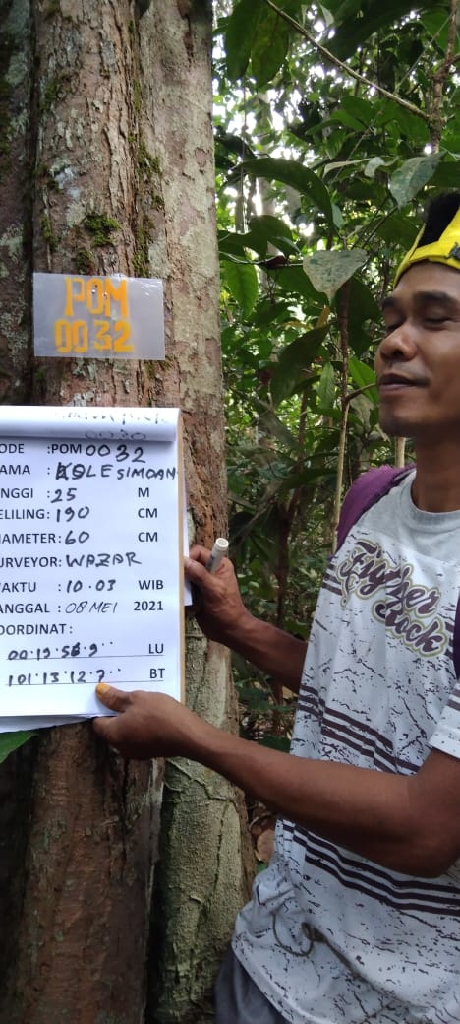 POM
0032
ODE : POM 0032
AMA : KOLESIMOAN
NGGI : 25 M
ELILING : 190 CM
IAMETER : 60 CM
URVEYOR : WAZAR
AKTU : 10.03 WIB
ANGGAL : 08 MEI 2021
OORDINAT :
00.19.56.9" LU
101.13.12.7" BT
Fighter
Rock